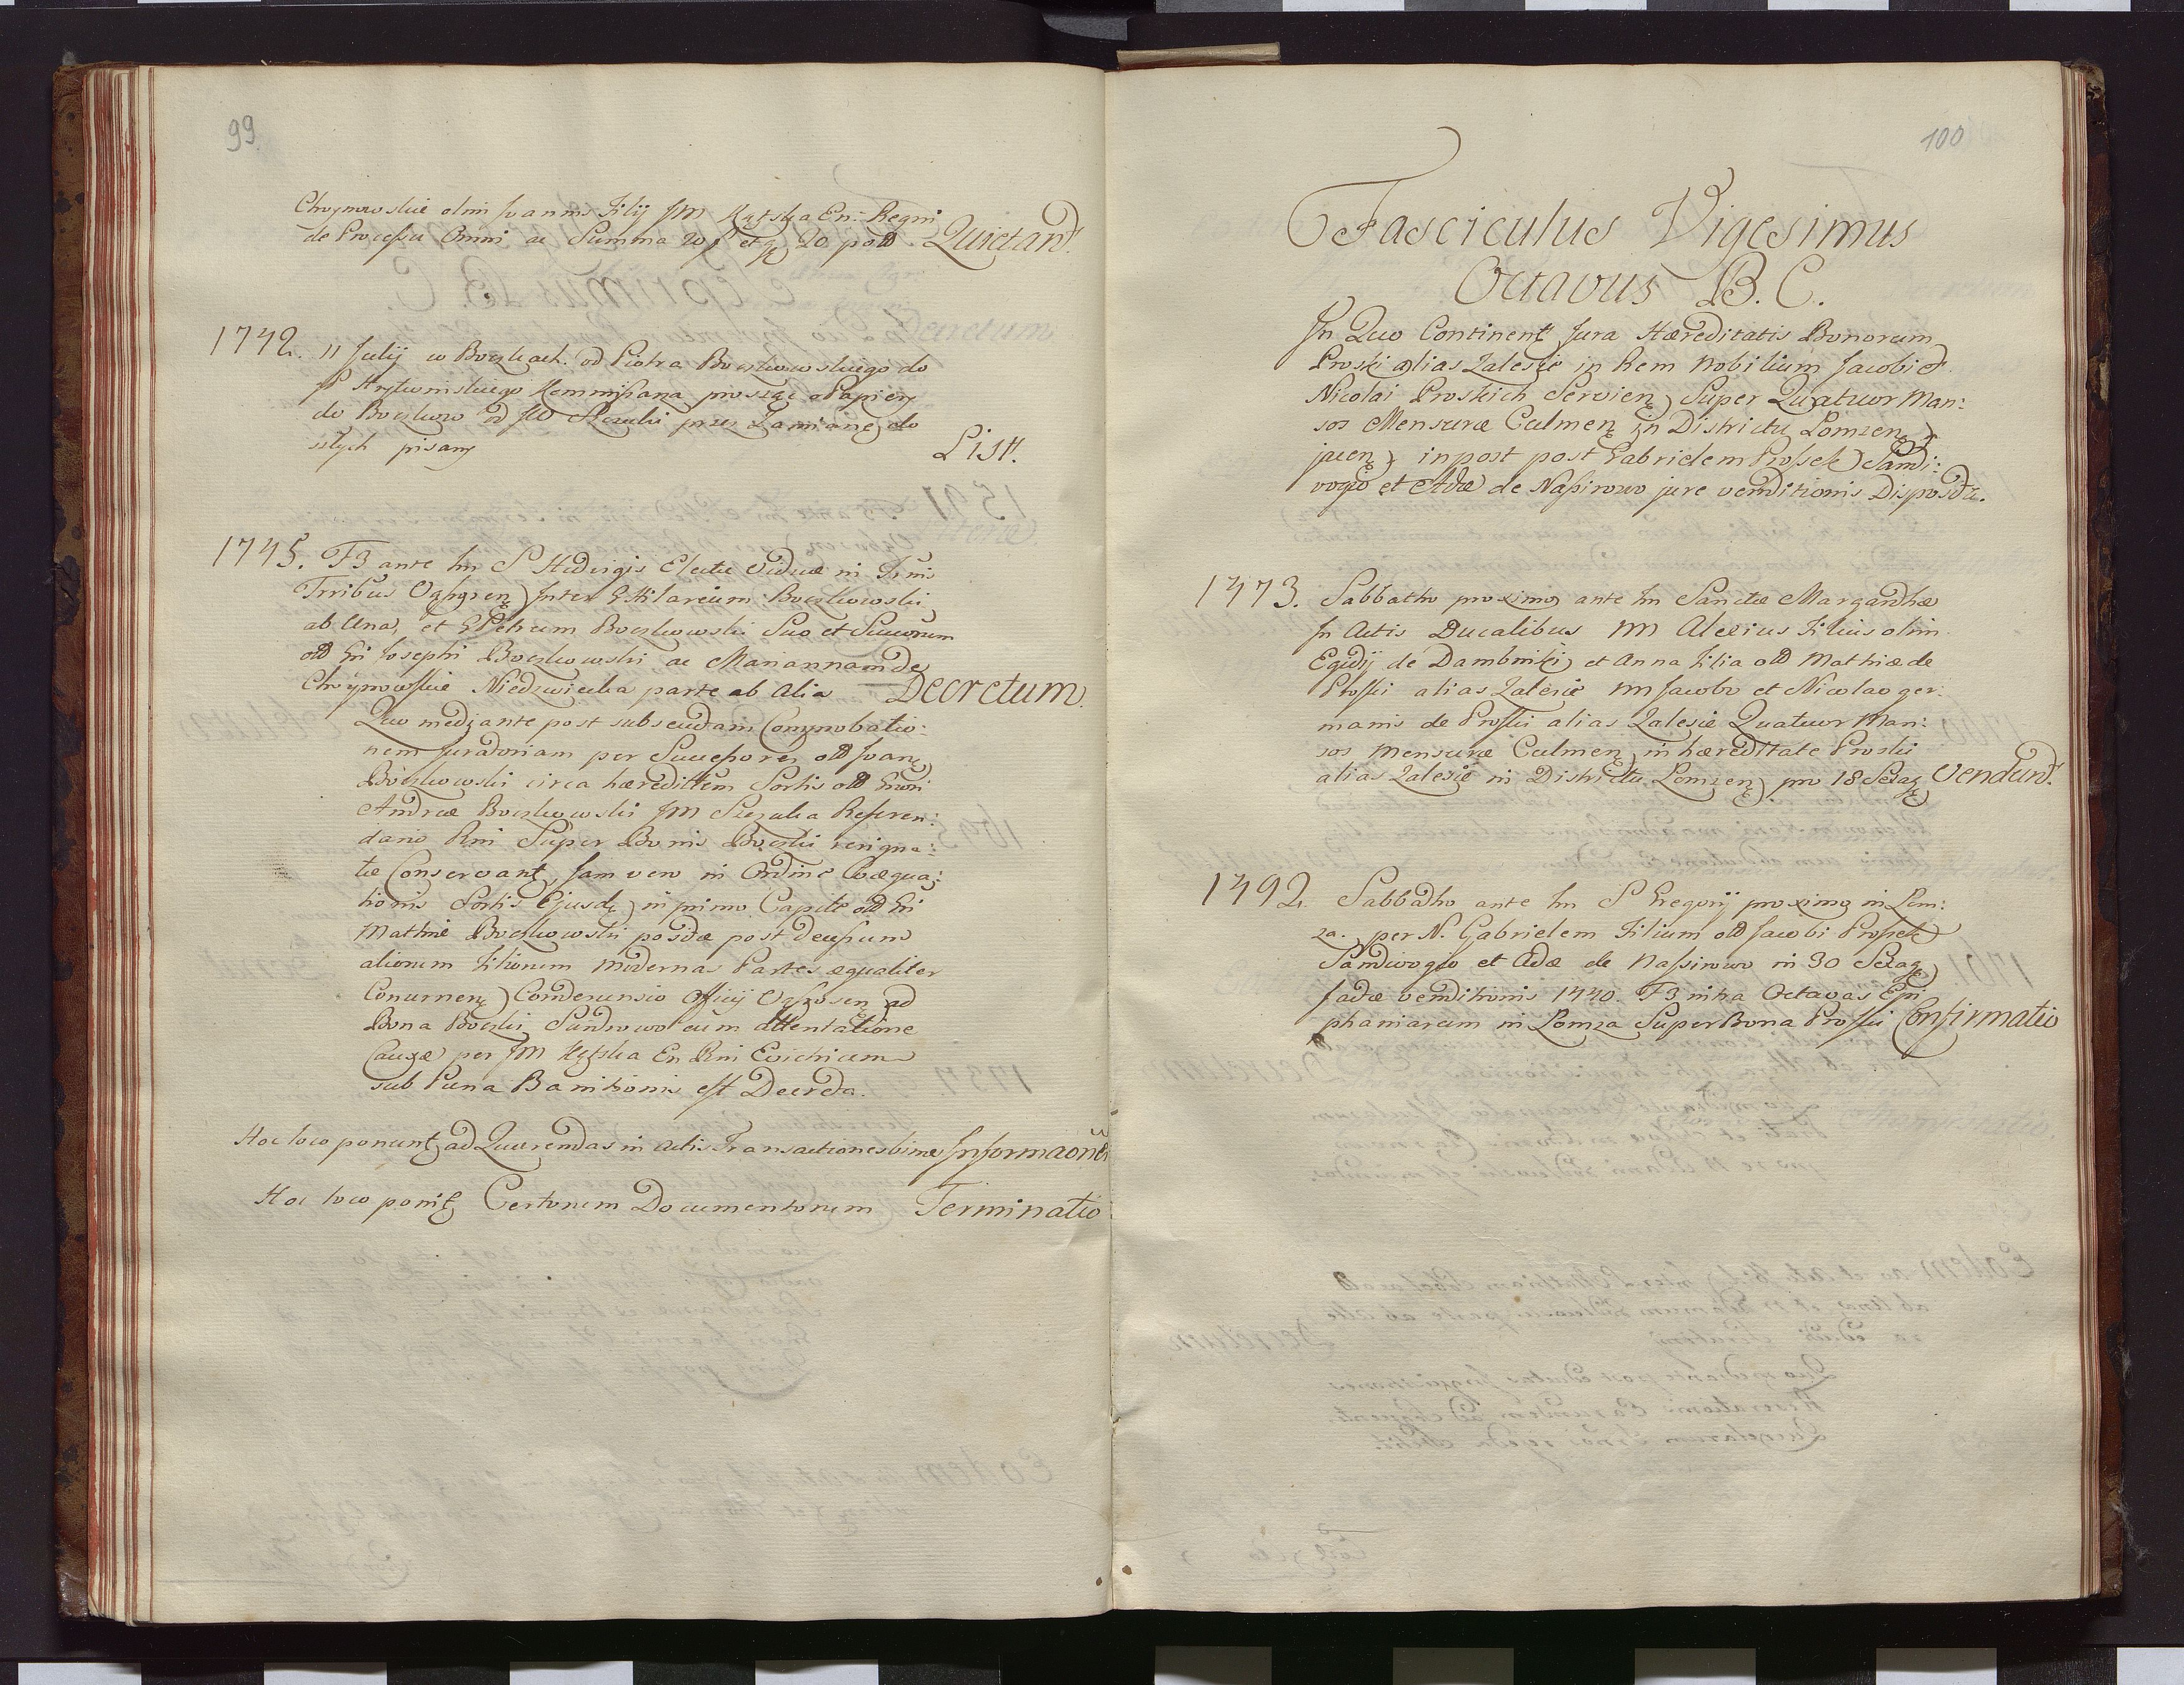 99.
Chrynowskie olim Joannis Filij JM Kątska En: Regni
de Processu Omni ac Summa 20 f et g 20 pod Quietand.
1742. 11 Julij w Boczkach. od Piotra Boczkowskiego do
JP Kommissana prosząc o Papiery
do Boczkow od JW Szczuki przez Zamianę do
szłych pisany List.
1745. F3 ante fm S Hedvigis Electæ Viduæ in Trnis
Trribus Inter G Hilarium Boczkowski
ab Una, et G Petrum Boczkowski Suo et Suorum
old Gi Josephi Boczkowski ac Mariannam de
Chrynowskie Niedzwiecka parte ab Alia Decretum.
Quo mediante post subseudam Comprobatio:
nem Juratoriam per Successores old Joan
Boczkowski circa hæredittem Sortis old
Andreæ Boczkowski JM Szczuka Referen:
dario Rni Super Bonis Boczki resigna:
tæ Conservant, Jam vero in Ordine Coæqua:
tionis Sortis Ejusd in primo Capite old Gi
Mathiæ Boczkowski posdæ post decessum
aliorum Filiorum modernas Partes æqualiter
Concurnen Condescensio Officij ad
Bona Boczki Sundrowo cum Attentatione
Causæ per JM Kątska En Rni Evictricem
sub Pæna Banitionis est Decreta.
Hoc loco ponunt ad Quærendas in Actis Transactiones binæ Informaones
Hoc loco ponit Certorum Documentorum Terminatio
100
Fasciculus Vigesimus
Octavus B. C.
In Quo Continent Jura Hæreditatis Bonorum
Proski alias Zalesie in Rem Nobilium Jacobi et
Nicolai Proskich Servien Super Quatuor Man:
sos Mensuræ Culmen in Districtu Lomzen
jacen, inpost post Gabrielem Prossek Sandi:
vogio et Adæ de Nassirowo jure venditionis Disposdæ.
1473. Sabbatho proximo ante fm Sanctæ Margarethæ
In Actis Ducalibus NN Alexius Filius olim
Egidij de Dambniki et Anna Filia old Mathiæ de
Proski alias Zalesie NN Jacobo et Nicolao ger:
manis de Proski alias Zalesie Quatuor Man:
sos Mensuræ Culmen in hæreditate Proski
alias Zalesie in Districtu Lomzen pro 18 Sexag Vendund.
1492. Sabbatho ante fm S Gregorij proximo in Lom:
za. per N. Gabrielem Filium old Jacobi Prossek
Sandivogio et Adæ de Nassirowo in 30 Sexag
factæ venditionis 1440. F3 intra Octavas Epi
phaniarum in Lomza Super Bona Proski Confirmatio